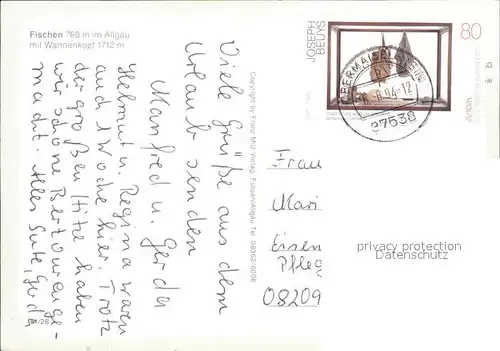 Fischen 760 m im Allgäu
mit Wannenkopf 1712 m
Viele Grüße aus dem
Urlaub senden
Manfred u. Gerda
Helmut u. Regina waren
auch 1 Woche hier. Trotz
der großen Hitze haben
wir schöne Bertouren ge-
macht. Alles Gute, Gerda
Copyright by Franz Milz Verlag, Füssen/Allgäu Tel. 08362/6008
JOSEPH
BEUYS
80
EUROPA
87538
Frau
Mari
Eisen
Pfleg
08209
privacy protection
Datenschutz